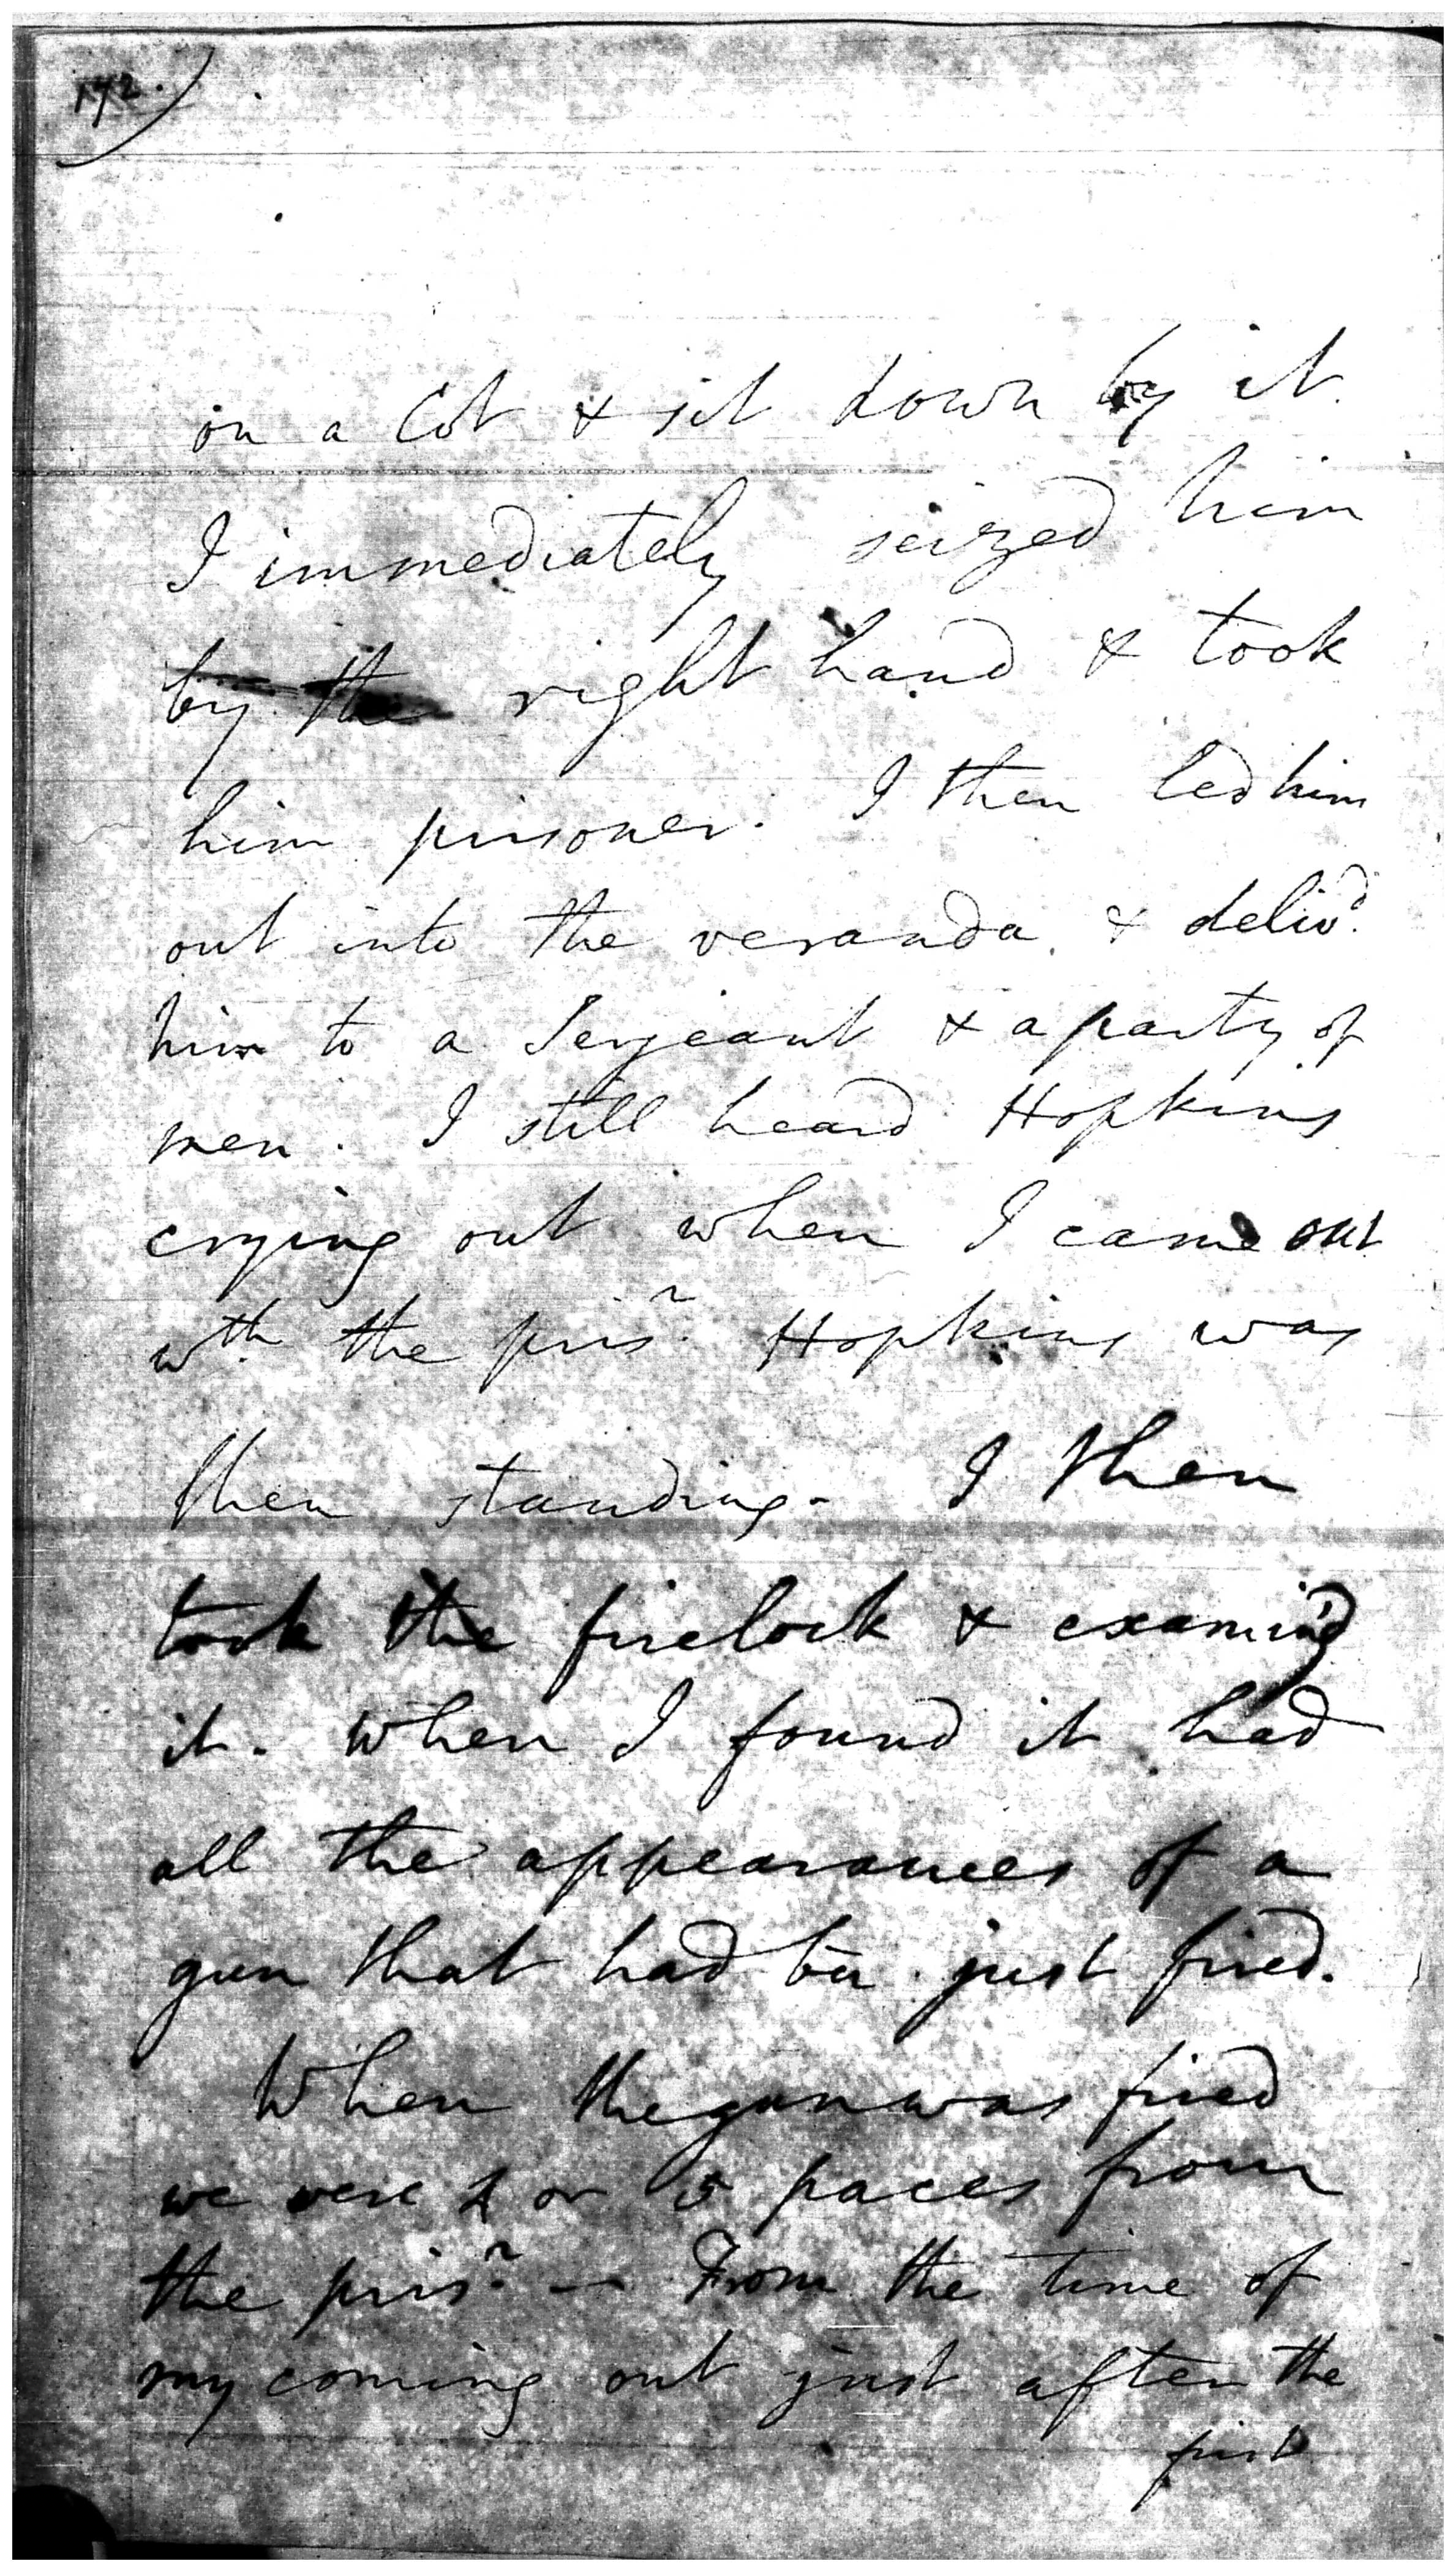 172.
on a Cot & sit down by it.
I immediately seized him
by the right hand & took
him prisoner. I then led him
out into the veranda, & delivd.
him to a Serjeant & a party of
men. I still heard Hopkins
crying out when I came out
wth. the prisr. Hopkins was
then standing. I then
took the firelock & examin'd
it. when I found it had
all the appearances of a
gun that had bn just fired.
When the gun was fired
we were 4 or 5 paces from
the prisr. — From the time of
my coming out just after the
first